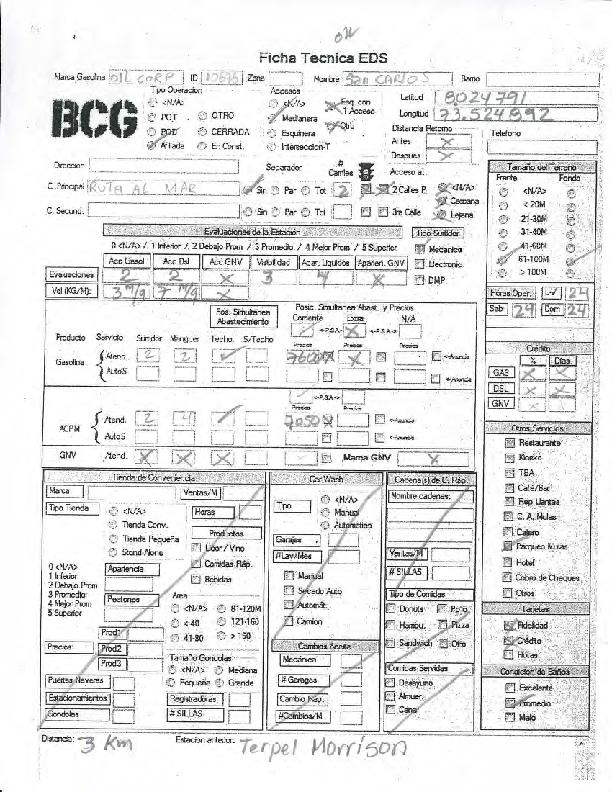 Ficha Tecnica EDS
Marca Gasolina OIL CORP ID Zona Nombre SAN CARLOS Barrio
BCG
Tipo Operacion
<N/A>
POT OTRO
POD CERRADA
Afiliada En Const.
Accesos
<N/A> Esq. con 1 Acceso
Medianera Otro
Esquinera
Interseccion-T
Latitud 8024791
Longitud 73.524892
Distancia Retorno
Antes
Despues
Telefono
Direccion
Separador # Carriles Acceso a:
C. Principal RUTA AL MAR Sin Par Tot 2 2 Calles P. <N/A> Cercana
C. Secund. Sin Par Tot 3ra Calle Lejana
Tamaño del Terreno
Frente Fondo
<N/A>
< 20M
21-30M
31-40M
41-60M
61-100M
> 100M
Evaluaciones de la Estación
0 <N/A> / 1 Inferior / 2 Debajo Prom / 3 Promedio / 4 Mejor Prom / 5 Superior
Acc Gasol Acc Dsl Acc GNV Visibilidad Apar. Liquidos Aparien. GNV
Evaluaciones 2 2 X 3 4 X
Vol (KG/M): 3 m/g 7 m/g X
Tipo Surtidor
Mecanico
Electronic.
DMP
Horas Oper. L-V 24
Sab 24 Dom 24
Pos. Simultanea Abastecimiento
Posic. Simultanea Abast. y Precios
Corriente Extra N/A
<-P.S.A-> X <-P.S.A->
Precios Precios Precios
Producto Servicio Surtidor Manguer Techo S/Techo
Gasolina Atend. 2 2 X <-Anuncio
AutoS <-Anuncio
<-P.S.A->
Precios Precios
ACPM Atend. 2 4 7050 <-Anuncio
AutoS <-Anuncio
GNV Atend. X X X X Marca GNV X
Credito
% Dias
GAS X X
DSL X X
GNV X X
Otros Servicios
Restaurante
Kiosko
TBA
Café/Bar
Rep Llantas
C. A. Mulas
Cajero
Parqueo Mulas
Hotel
Cobro de Cheques
Otros
Tarjetas
Fidelidad
Crédito
Flotas
Condicion de Baños
Excelente
Promedio
Malo
Tienda de Conveniencia
Marca Ventas/M
Tipo Tienda <N/A> Horas
Tienda Conv.
Tienda Pequeña
Stand Alone
Productos
Licor / Vino
Comidas Ráp.
Bebidas
0 <N/A>
1 Inferior
2 Debajo Prom
3 Promedio
4 Mejor Prom
5 Superior
Apariencia
Posiciones
Area
<N/A> 81-120M
< 40 121-160
41-80 > 160
Precios: Prod1
Prod2
Prod3
Tamaño Gondolas
<N/A> Mediana
Pequeña Grande
Puertas Neveras
Estacionamientos Registradoras
Gondolas # SILLAS
Car Wash
Tipo <N/A>
Manual
Automático
Garajes
#Lav/Mes
Manual
Secado Auto
Automát.
Camion
Cambios Aceite
Mecánicen
# Garages
Cambio Ráp.
#Cambios/M
Cadena(s) de C. Ráp.
Nombre cadenas:
Ventas/M
# SILLAS
Tipo de Comidas
Donuts Pollo
Hambu. Pizza
Sandwich Otro
Comidas Servidas
Desayuno
Almuer.
Cena
Distancia: 3 Km Estacion anterior: Terpel Morrison